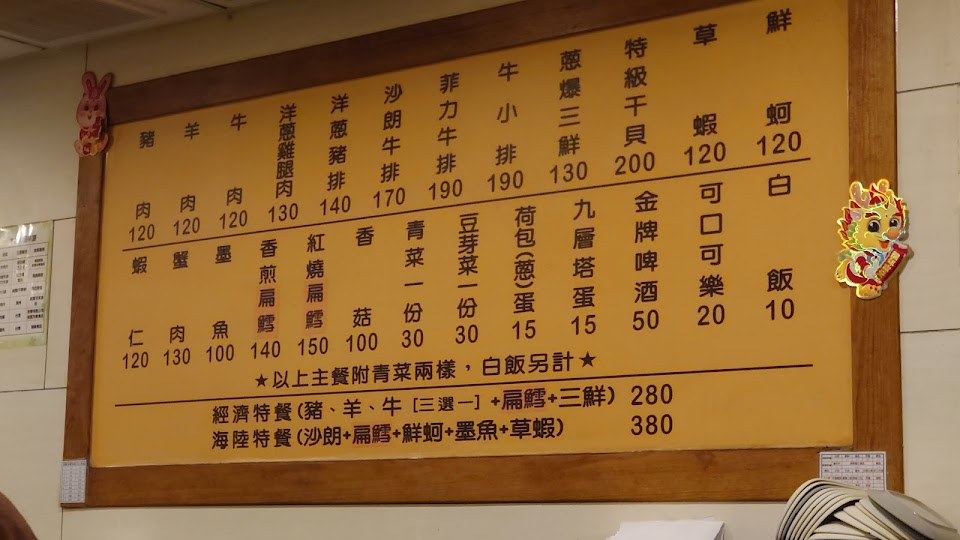 鮮蚵 120
草蝦 120
特級干貝 200
蔥爆三鮮 130
牛小排 190
菲力牛排 190
沙朗牛排 170
洋蔥豬排 140
洋蔥雞腿肉 130
牛肉 120
羊肉 120
豬肉 120
白飯 10
可口可樂 20
金牌啤酒 50
九層塔蛋 15
荷包(蔥)蛋 15
豆芽菜一份 30
青菜一份 30
香菇 100
紅燒扁鱈 150
香煎扁鱈 140
墨魚 100
蟹肉 130
蝦仁 120
★以上主餐附青菜兩樣，白飯另計★
經濟特餐(豬、羊、牛 [三選一] +扁鱈+三鮮) 280
海陸特餐(沙朗+扁鱈+鮮蚵+墨魚+草蝦) 380